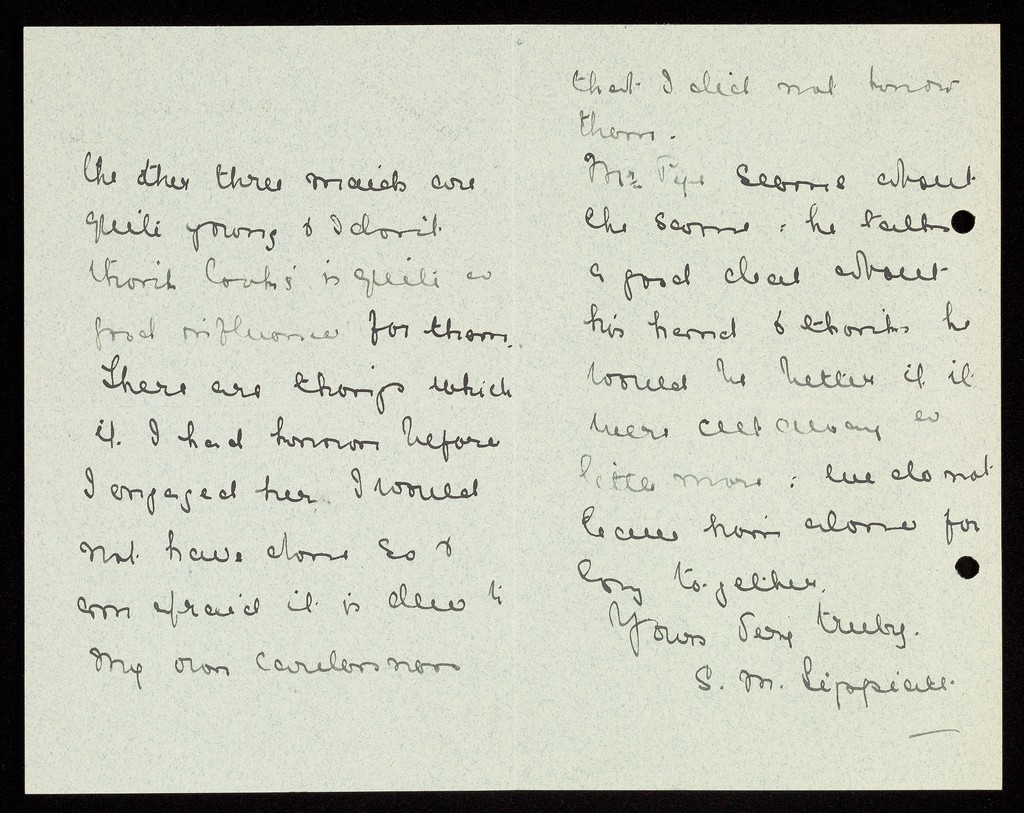 the other three maids are
quite young & I don't
think Cook's is quite a
good influence for them.
There are things which
if I had known before
I engaged her I would
not have done so &
am afraid it is due to
my own carelessness
that I did not know
them.
Mr. Tye seems about
the same: he talks
a good deal about
his hand & thinks he
would be better if it
were cut away a
little more: we do not
leave him alone for
long together.
Yours very truly.
S. M.